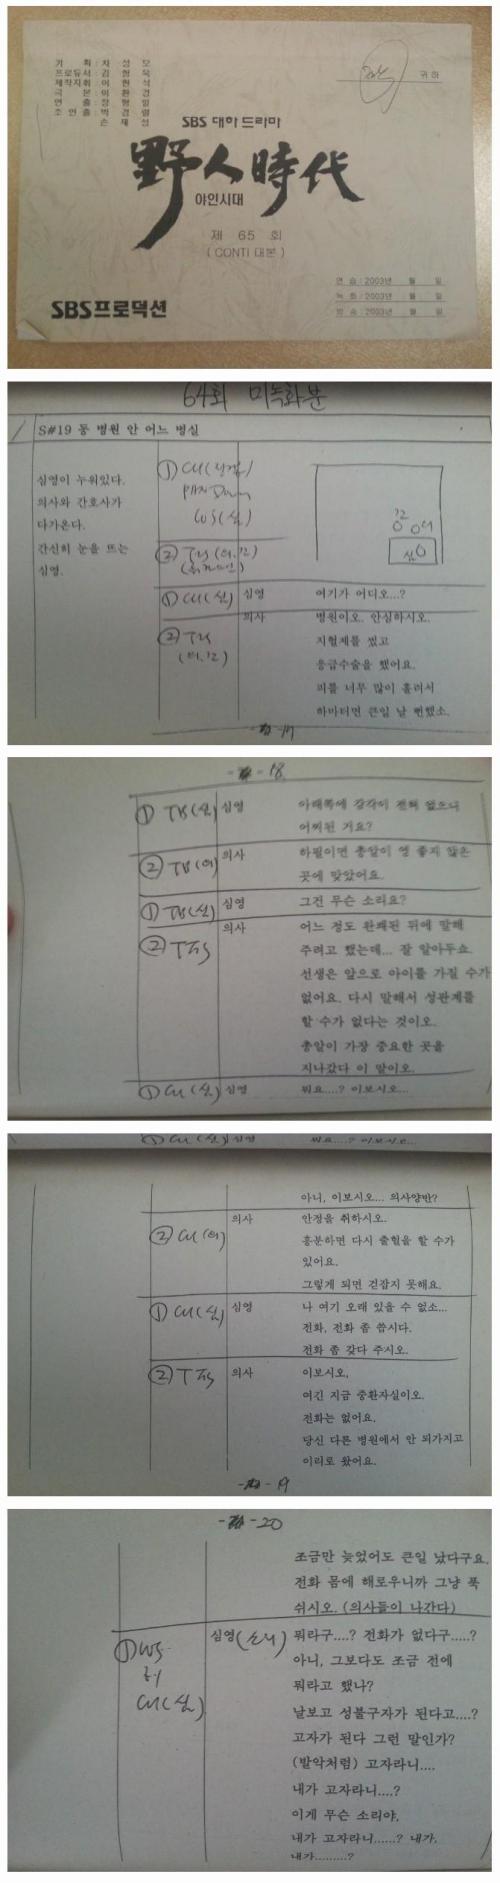 기 획 : 차 성 모
프로듀서 : 김 형 옥
제작지휘 : 이 현 석
극 본 : 이 환 경
연 출 : 장 형 일
조 연 출 : 박 경 렬
손 재 성
귀 하
SBS 대하 드라마
野人時代
야인시대
제 65 회
( CONTI 대본 )
연 습 : 2003년 월 일
녹 화 : 2003년 월 일
방 송 : 2003년 월 일
SBS프로덕션
64회 미녹화분
S#19 동 병원 안 어느 병실
심영이 누워있다.
의사와 간호사가
다가온다.
간신히 눈을 뜨는
심영.
① CU
PAN Down
WS (심)
② T2S (의.간)
① CU (심) 심영 여기가 어디오...?
② T2S (의.간) 의사 병원이오. 안심하시오.
지혈제를 썼고
응급수술을 했어요.
피를 너무 많이 흘려서
하마터면 큰일 날 뻔했소.
17
18
① TB (심) 심영 아래쪽에 감각이 전혀 없으니
어찌된 거요?
② TB (의) 의사 하필이면 총알이 영 좋지 않은
곳에 맞았어요.
① TB (심) 심영 그건 무슨 소리요?
② T2S 의사 어느 정도 완쾌된 뒤에 말해
주려고 했는데... 잘 알아두쇼.
선생은 앞으로 아이를 가질 수가
없어요. 다시 말해서 성관계를
할 수가 없다는 것이오.
총알이 가장 중요한 곳을
지나갔다 이 말이오.
① CU (심) 심영 뭐요....? 이보시오...
① CU (심) 심영 뭐요....? 이보시오...
아니, 이보시오... 의사양반?
② CU (의) 의사 안정을 취하시오.
흥분하면 다시 출혈을 할 수가
있어요.
그렇게 되면 걷잡지 못해요.
① CU (심) 심영 나 여기 오래 있을 수 없소...
전화, 전화 좀 씁시다.
전화 좀 갖다 주시오.
② T2S 의사 이보시오,
여긴 지금 중환자실이오.
전화는 없어요.
당신 다른 병원에서 안 되가지고
이리로 왔어요.
19
20
조금만 늦었어도 큰일 났다구요.
전화 몸에 해로우니까 그냥 푹
쉬시오. (의사들이 나간다)
① WS
CU (심) 심영 (소리) 뭐라구....? 전화가 없다구.....?
아니, 그보다도 조금 전에
뭐라고 했나?
날보고 성불구자가 된다고....?
고자가 된다 그런 말인가?
(발악처럼) 고자라니....
내가 고자라니....?
이게 무슨 소리야,
내가 고자라니......? 내가,
내가.........?